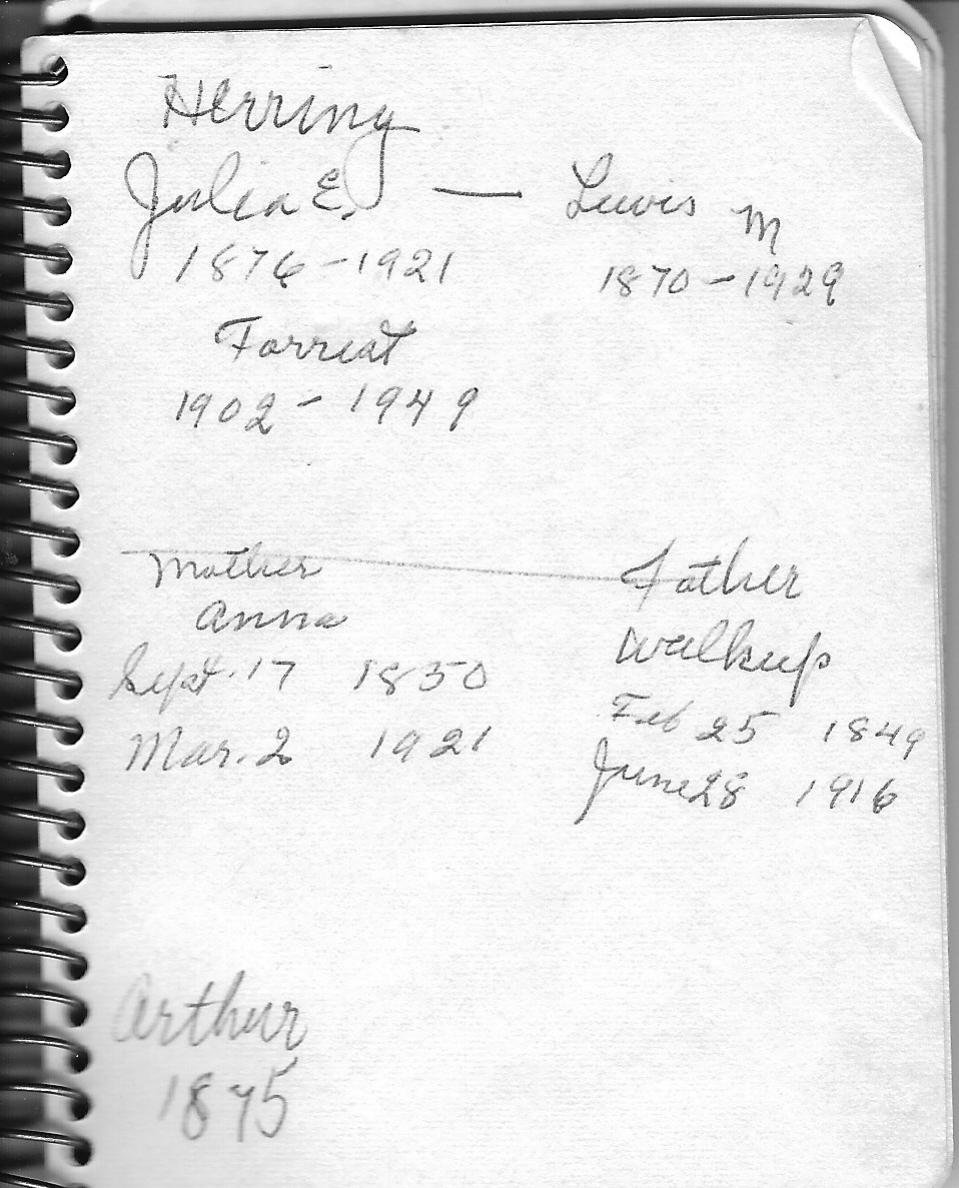 Herring
Julia E. — Lewis M
1876-1921 1870-1929
Forrest
1902-1949
Mother Father
Anna Walkup
Sept. 17 1850 Feb 25 1849
Mar. 2 1921 June 28 1916
Arthur
1875